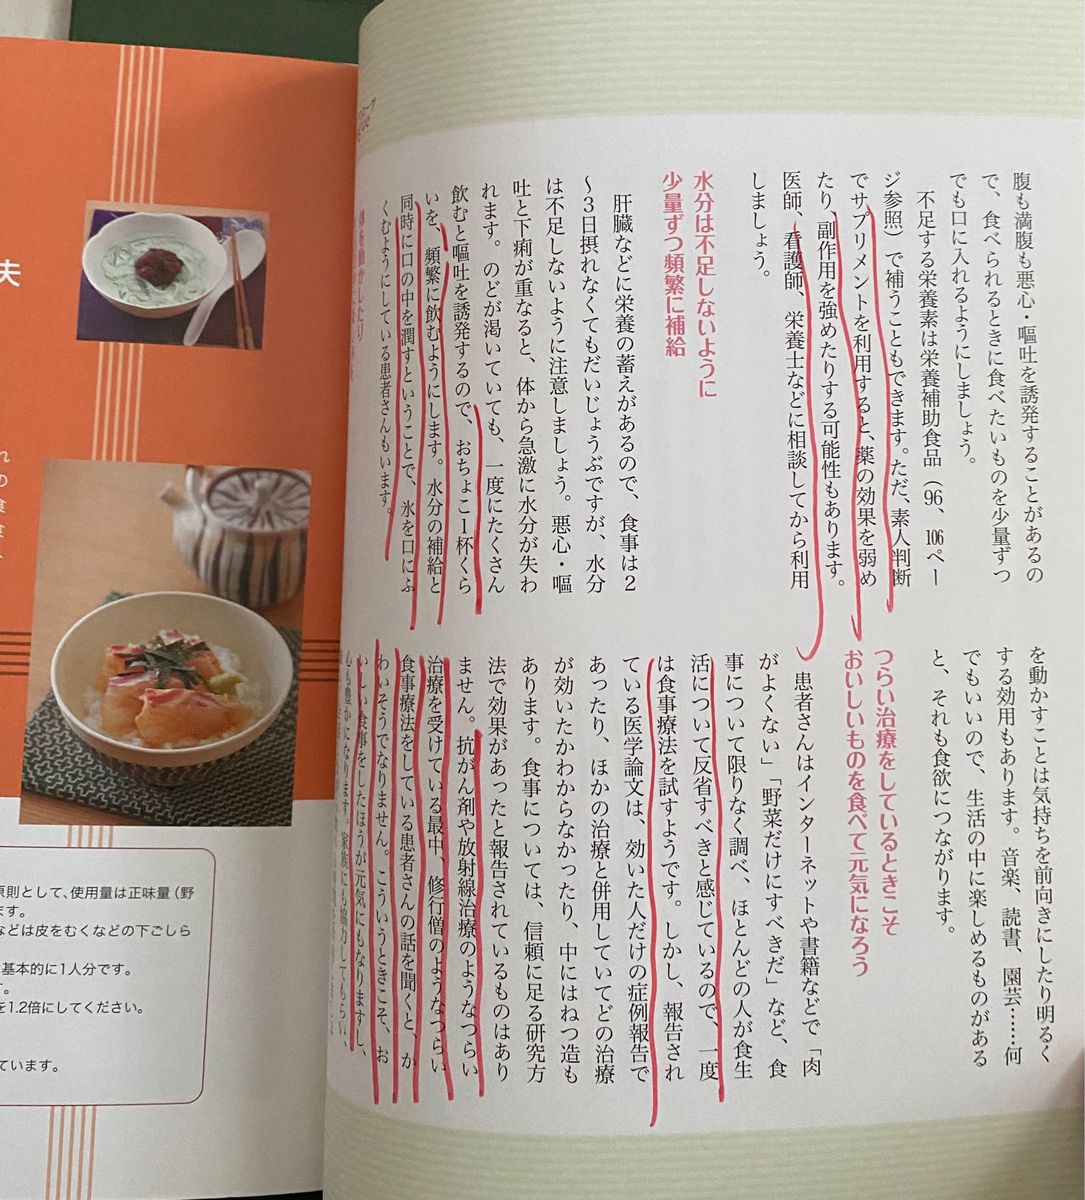 腹も満腹も悪心・嘔吐を誘発することがあるの
で、食べられるときに食べたいものを少量ずつ
でも口に入れるようにしましょう。
不足する栄養素は栄養補助食品（96、106ペー
ジ参照）で補うこともできます。ただ、素人判断
でサプリメントを利用すると、薬の効果を弱め
たり、副作用を強めたりする可能性もあります。
医師、看護師、栄養士などに相談してから利用
しましょう。
水分は不足しないように
少量ずつ頻繁に補給
肝臓などに栄養の蓄えがあるので、食事は2
〜3日摂れなくてもだいじょうぶですが、水分
は不足しないように注意しましょう。悪心・嘔
吐と下痢が重なると、体から急激に水分が失わ
れます。のどが渇いていても、一度にたくさん
飲むと嘔吐を誘発するので、おちょこ1杯くら
いを、頻繁に飲むようにします。水分の補給と
同時に口の中を潤すということで、氷を口にふ
くむようにしている患者さんもいます。
体を動かしたり
を動かすことは気持ちを前向きにしたり明るく
する効用もあります。音楽、読書、園芸……何
でもいいので、生活の中に楽しめるものがある
と、それも食欲につながります。
つらい治療をしているときこそ
おいしいものを食べて元気になろう
患者さんはインターネットや書籍などで「肉
がよくない」「野菜だけにすべきだ」など、食
事について限りなく調べ、ほとんどの人が食生
活について反省すべきと感じているので、一度
は食事療法を試すようです。しかし、報告され
ている医学論文は、効いた人だけの症例報告で
あったり、ほかの治療と併用していてどの治療
が効いたかわからなかったり、中にはねつ造も
あります。食事については、信頼に足る研究方
法で効果があったと報告されているものはあり
ません。抗がん剤や放射線治療のようなつらい
治療を受けている最中、修行僧のようなつらい
食事療法をしている患者さんの話を聞くと、か
わいそうでなりません。こういうときこそ、お
いしい食事をしたほうが元気にもなりますし、
心も豊かになります。家族にも協力してもらい、
夫
原則として、使用量は正味量（野
ます。
などは皮をむくなどの下ごしら
基本的に1人分です。
す。
を1.2倍にしてください。
ています。